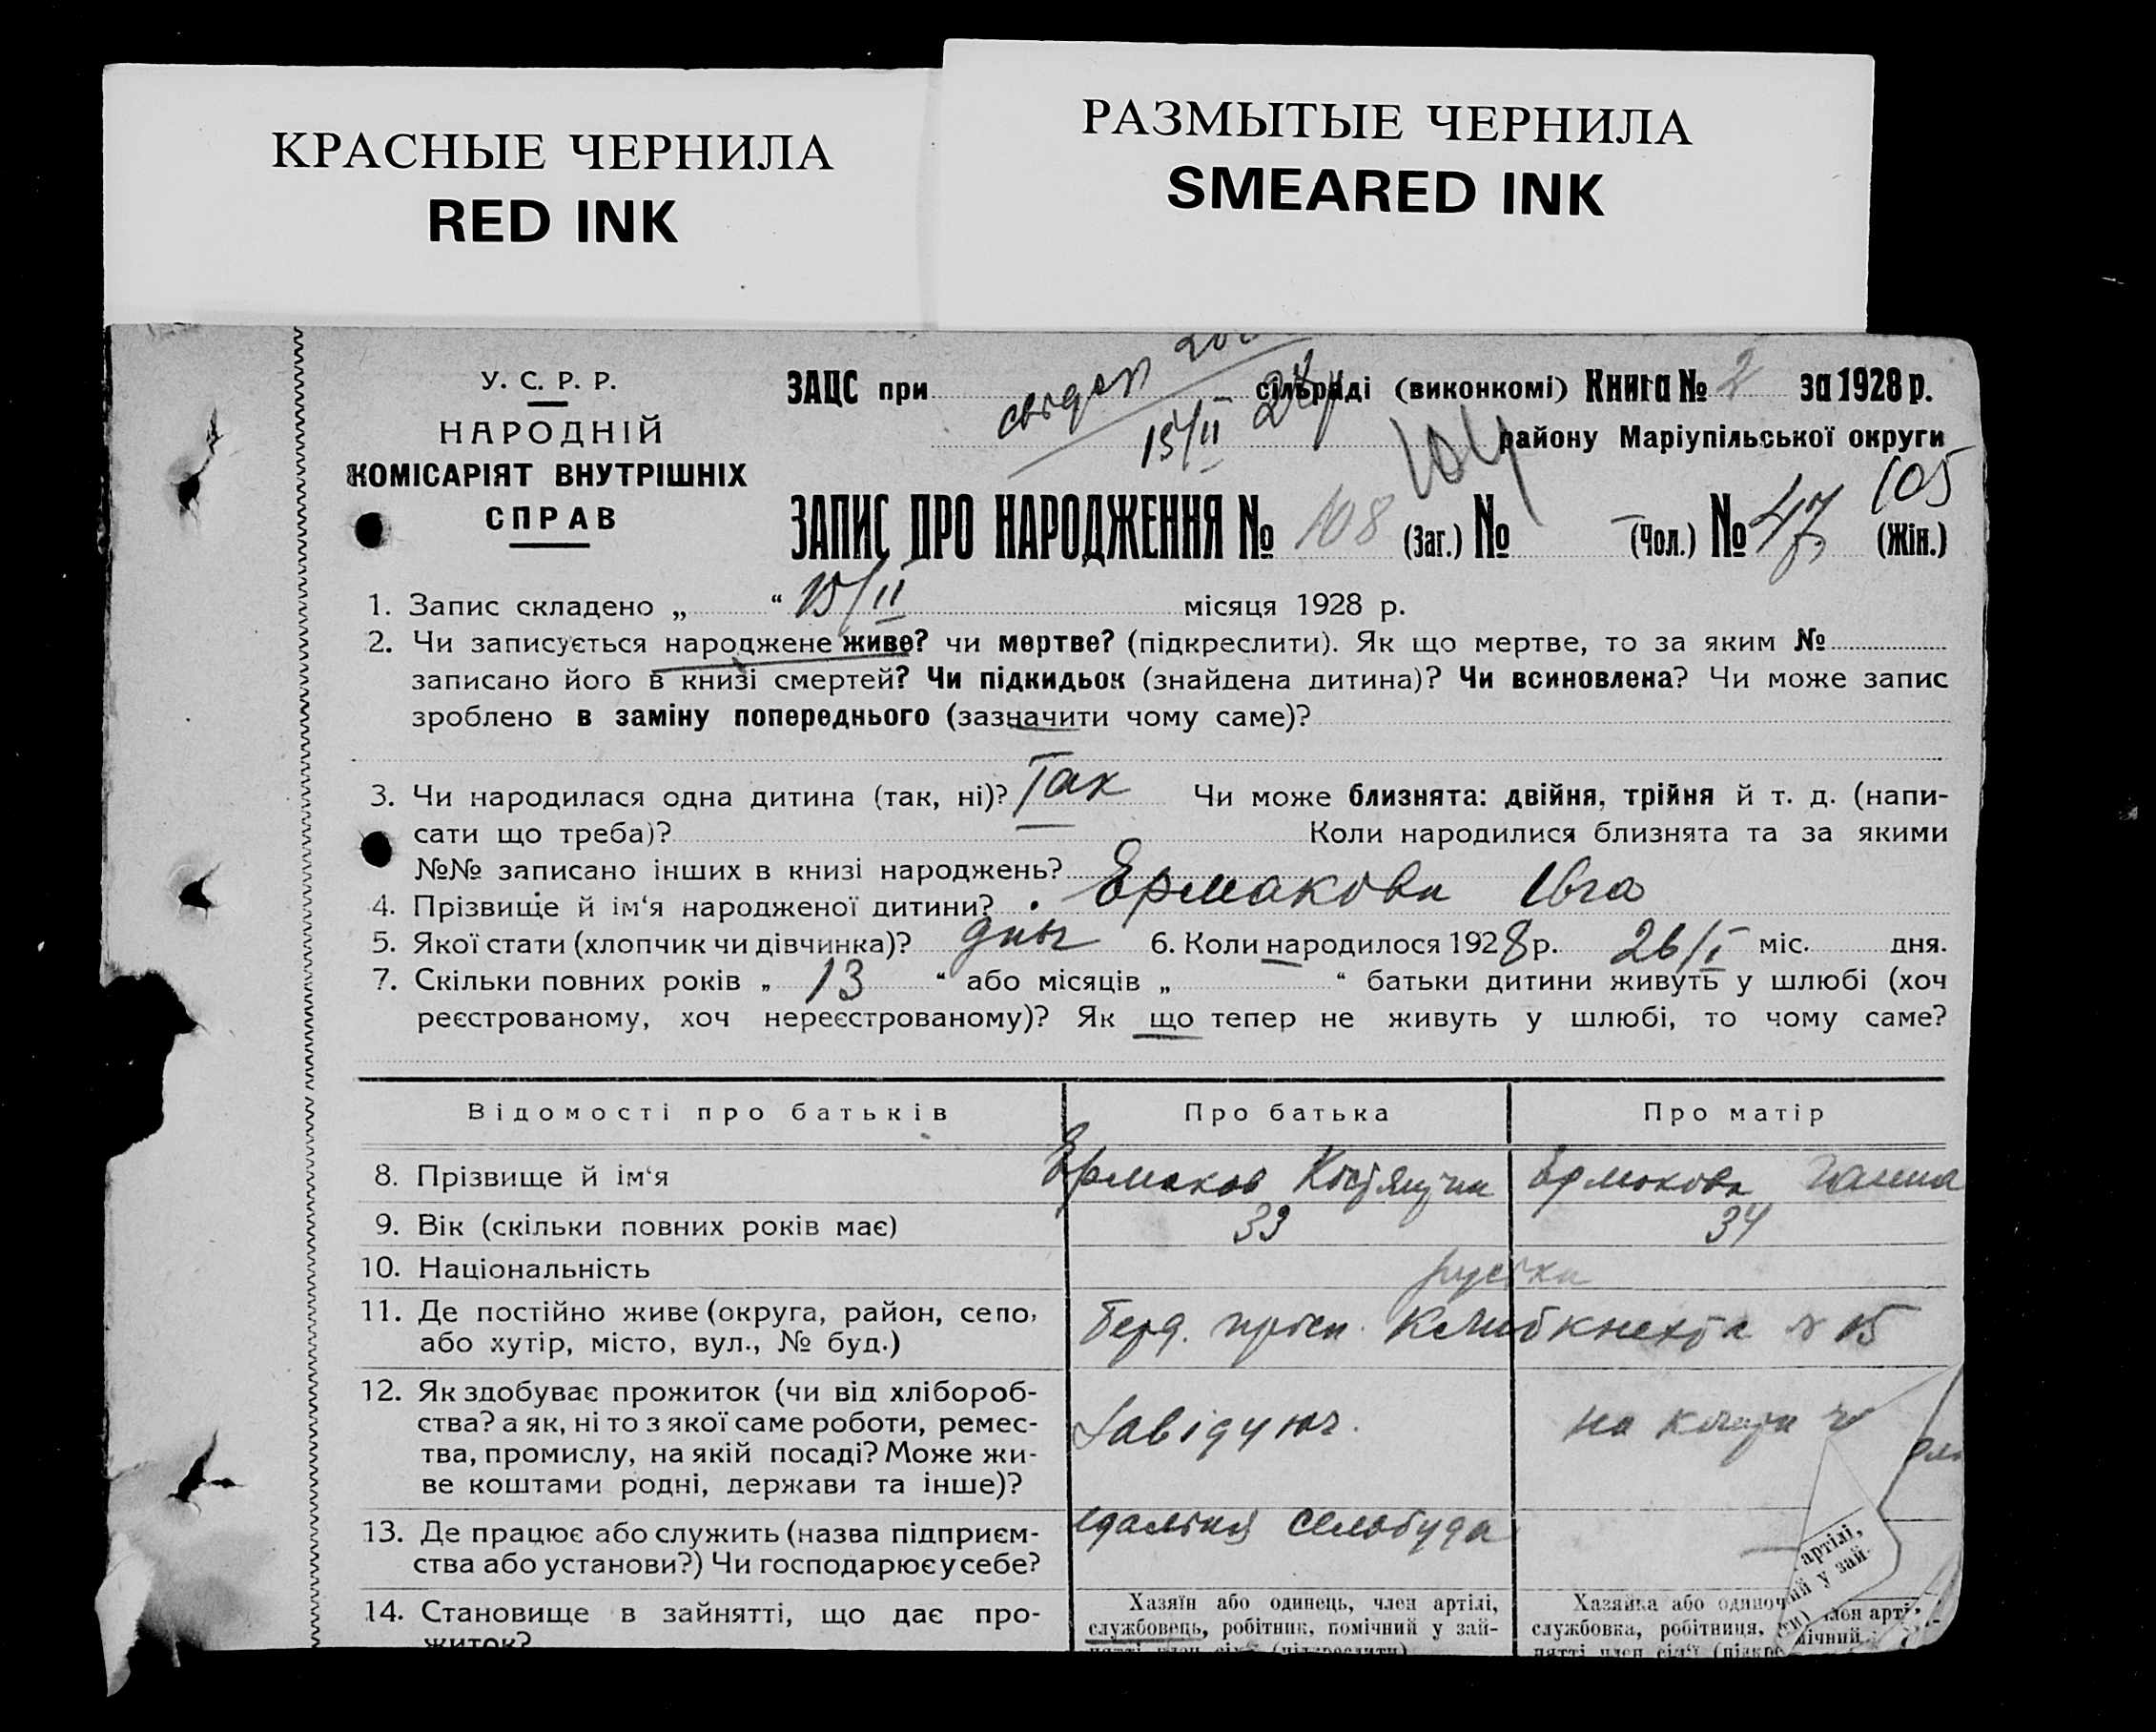 КРАСНЫЕ ЧЕРНИЛА
RED INK
РАЗМЫТЫЕ ЧЕРНИЛА
SMEARED INK
У. С. Р. Р.
НАРОДНІЙ
КОМІСАРІЯТ ВНУТРІШНІХ
СПРАВ
ЗАЦС при сільраді (виконкомі) Книга № 2 за 1928 р.
15/II 28 р
району Маріупільської округи
104
105
ЗАПИС ПРО НАРОДЖЕННЯ № 108 (Заг.) № – (Чол.) № 47 (Жін.)
1. Запис складено „ “ 15/II місяця 1928 р.
2. Чи записується народжене живе? чи мертве? (підкреслити). Як що мертве, то за яким №
записано його в книзі смертей? Чи підкидьок (знайдена дитина)? Чи всиновлена? Чи може запис
зроблено в заміну попереднього (зазначити чому саме)?
3. Чи народилася одна дитина (так, ні)? Так Чи може близнята: двійня, трійня й т. д. (напи-
сати що треба)? Коли народилися близнята та за якими
№№ записано інших в книзі народжень?
4. Прізвище й ім‘я народженої дитини? Ермакова
5. Якої стати (хлопчик чи дівчинка)? 6. Коли народилося 1928 р. 26/I міс. дня.
7. Скільки повних років „ 13 “ або місяців „ “ батьки дитини живуть у шлюбі (хоч
реєстрованому, хоч нереєстрованому)? Як що тепер не живуть у шлюбі, то чому саме?
Відомості про батьків Про батька Про матір
8. Прізвище й ім‘я Ермаков Ермакова Ганна
9. Вік (скільки повних років має) 33 34
10. Національність
11. Де постійно живе (округа, район, село,
або хутір, місто, вул., № буд.)
просп. К Либкнехта № 15
12. Як здобуває прожиток (чи від хлібороб-
ства? а як, ні то з якої саме роботи, ремес-
тва, промислу, на якій посаді? Може жи-
ве коштами родні, держави та інше)?
Завідуюч.
на
13. Де працює або служить (назва підприєм-
ства або установи?) Чи господарює у себе?
їдальня сельбуда
14. Становище в зайнятті, що дає про-
житок?
Хазяїн або одинець, член артілі,
службовець, робітник, помічний у зай-
нятті член сім‘ї (підкреслити)
Хазяйка або одиноч
службовка, робітниця,
нятті член сім‘ї (підкре
артілі,
ий у зай-
член арті
мічний